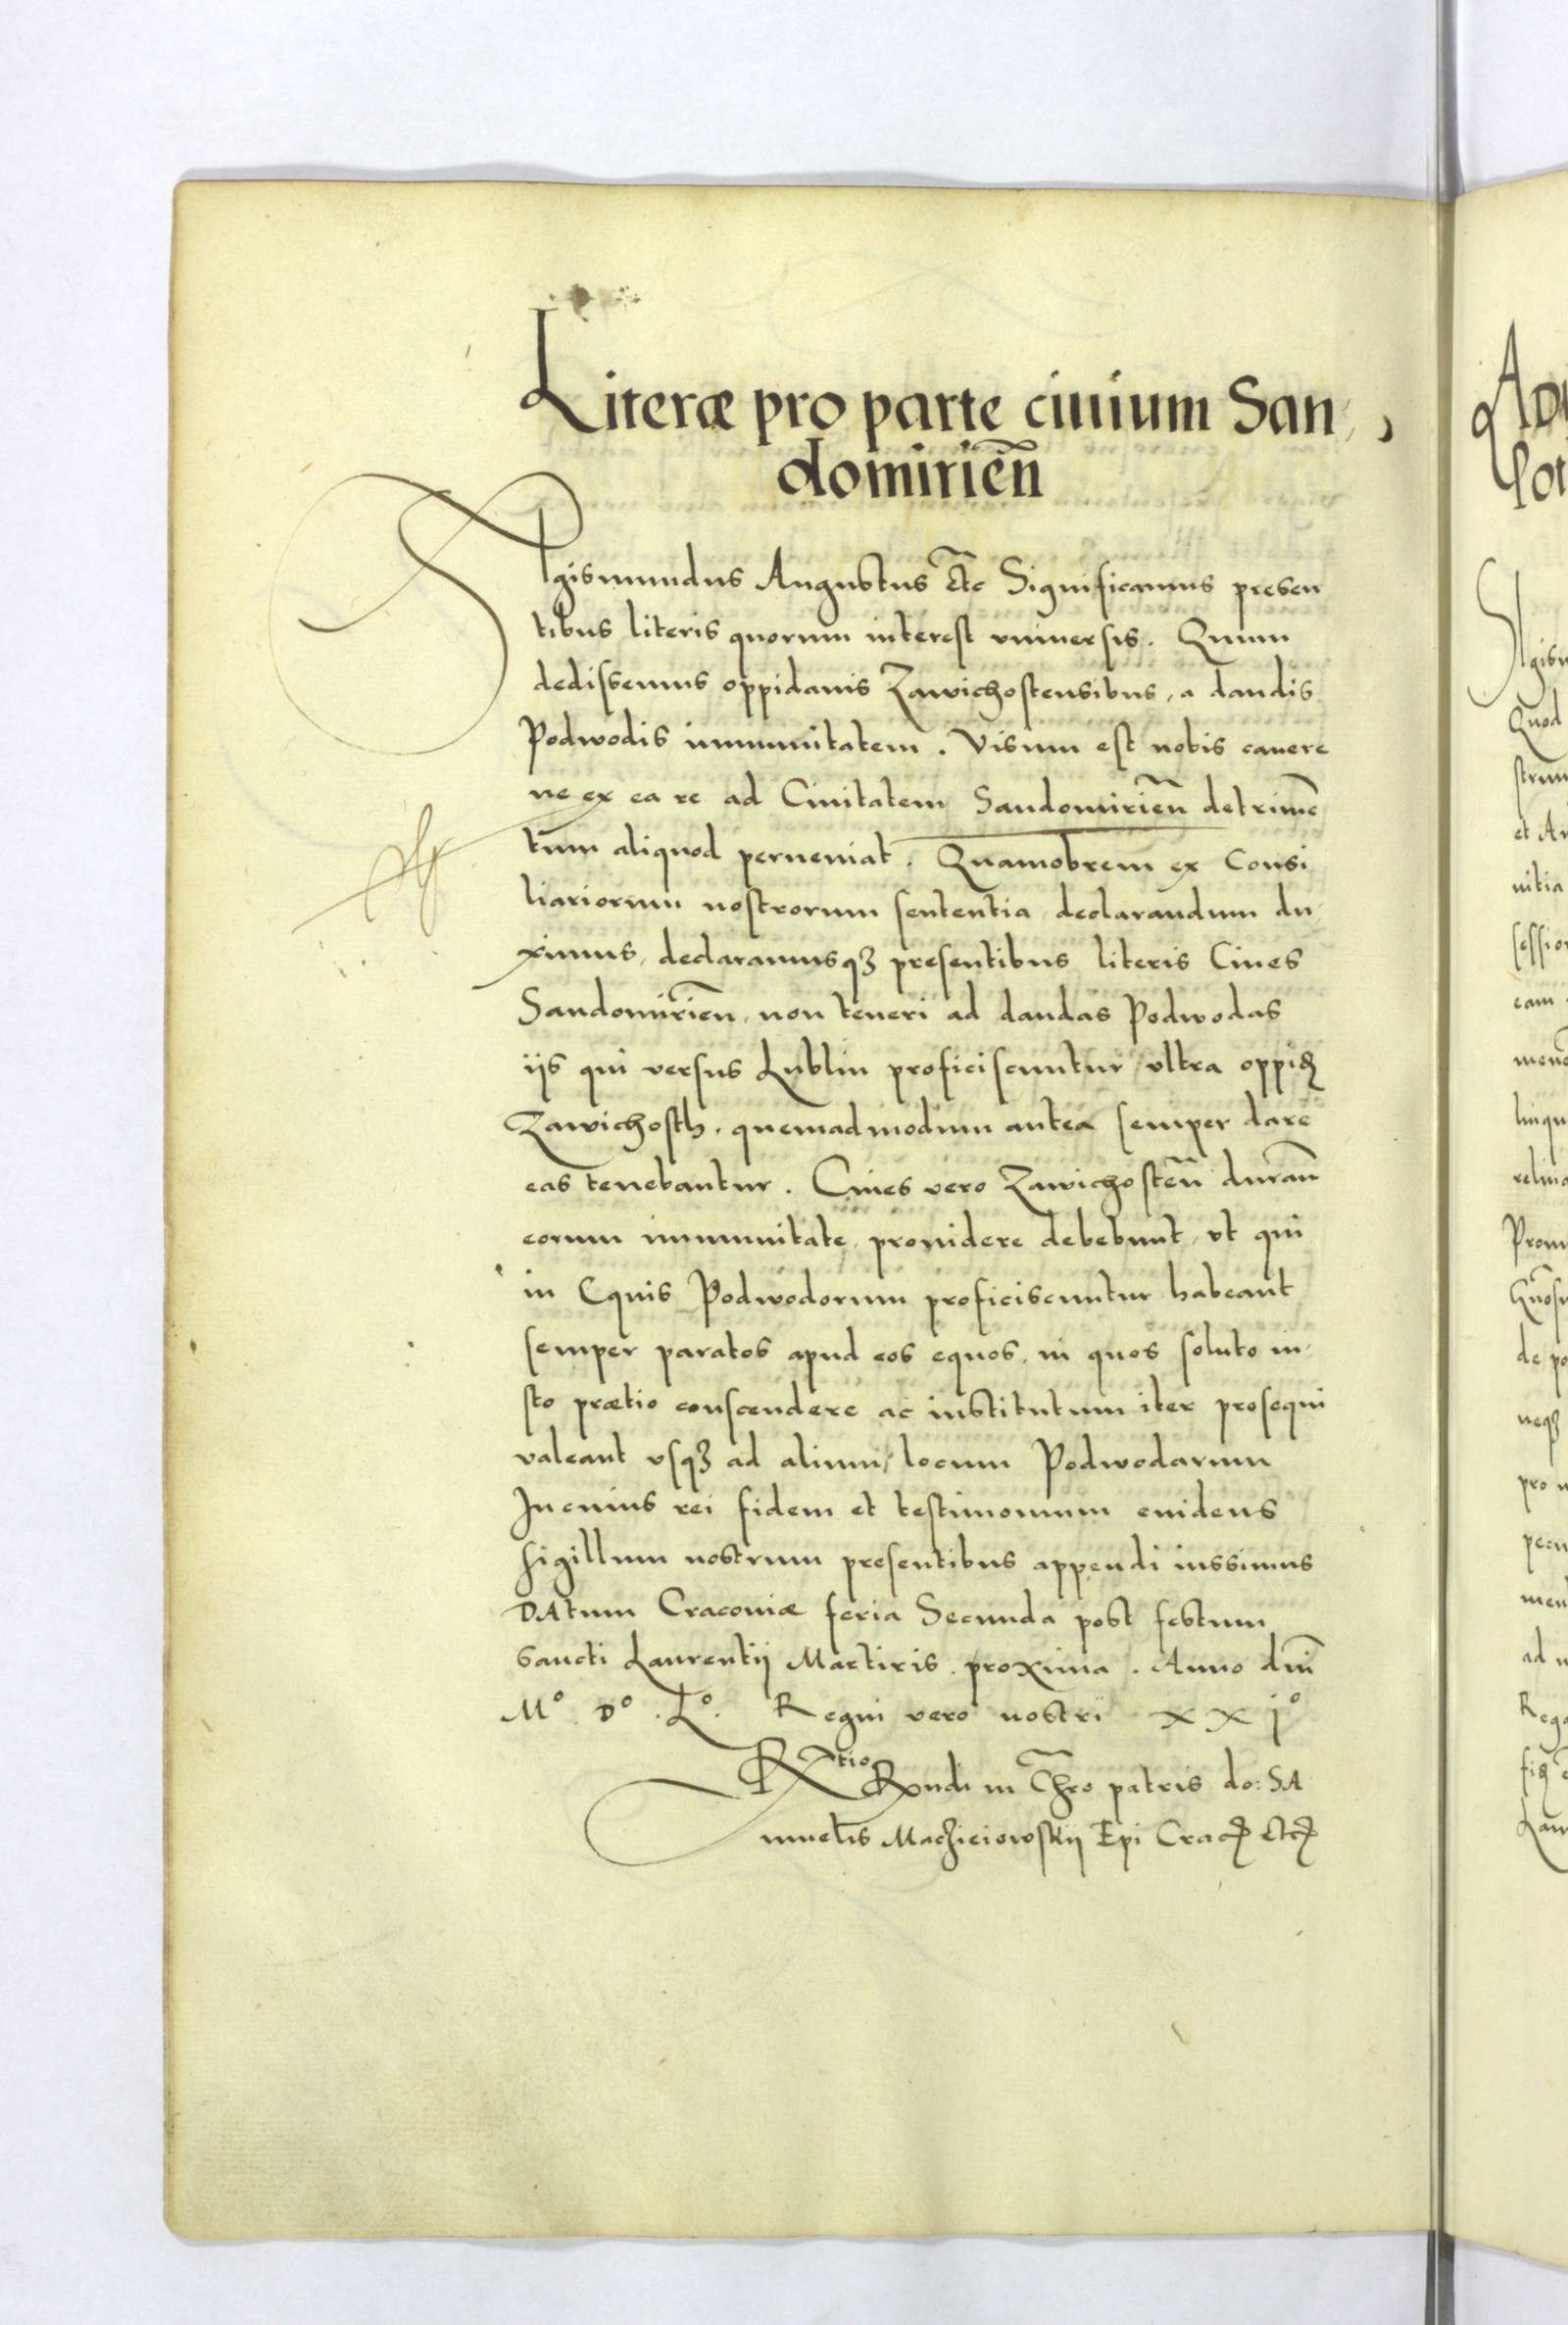 Literæ pro parte ciuium San,
domirien̄
Sigismundus Augustus Etc Significamus presen
tibus literis quorum interest vniuersis. Quum
dedissemus oppidanis Zawichostensibus, a dandis
Podwodis immunitatem. Visum est nobis cauere
ne ex ea re ad Ciuitatem Sandomirien̄ detrime̅
tum aliquod perueniat. Quamobrem ex Consi
liariorum nostrorum sententia declarandum du,
ximus, declaramusqꝫ presentibus literis Ciues
Sandomirien̄, non teneri ad dandas Podwodas
ijs qui versus Lublin proficiscuntur vltra oppiꝺ
Zawichosth, quemadmodum antea semper dare
eas tenebantur. Ciues vero Zawichosten̄ duran̄
eorum immunitate, prouidere debebunt, vt qui
in Equis Podwodorum proficiscuntur habeant
semper paratos apud eos equos, in quos soluto iu,
sto prætio conscendere ac institutum iter prosequi
valeant vsqꝫ ad alium locum Podwodarum
In cuius rei fidem et testimonium euidens
sigillum nostrum presentibus appendi iussimus
DAtum Cracouiæ feria Secunda post festum
Sancti Laurentij Martiris proxima. Anno dn̄i
Mº. Dº. Lº. Regni vero nostri XXjº
Rtio Rndi in Chro patris do: SA
muelis Macziciowskij Epi Crac Etc